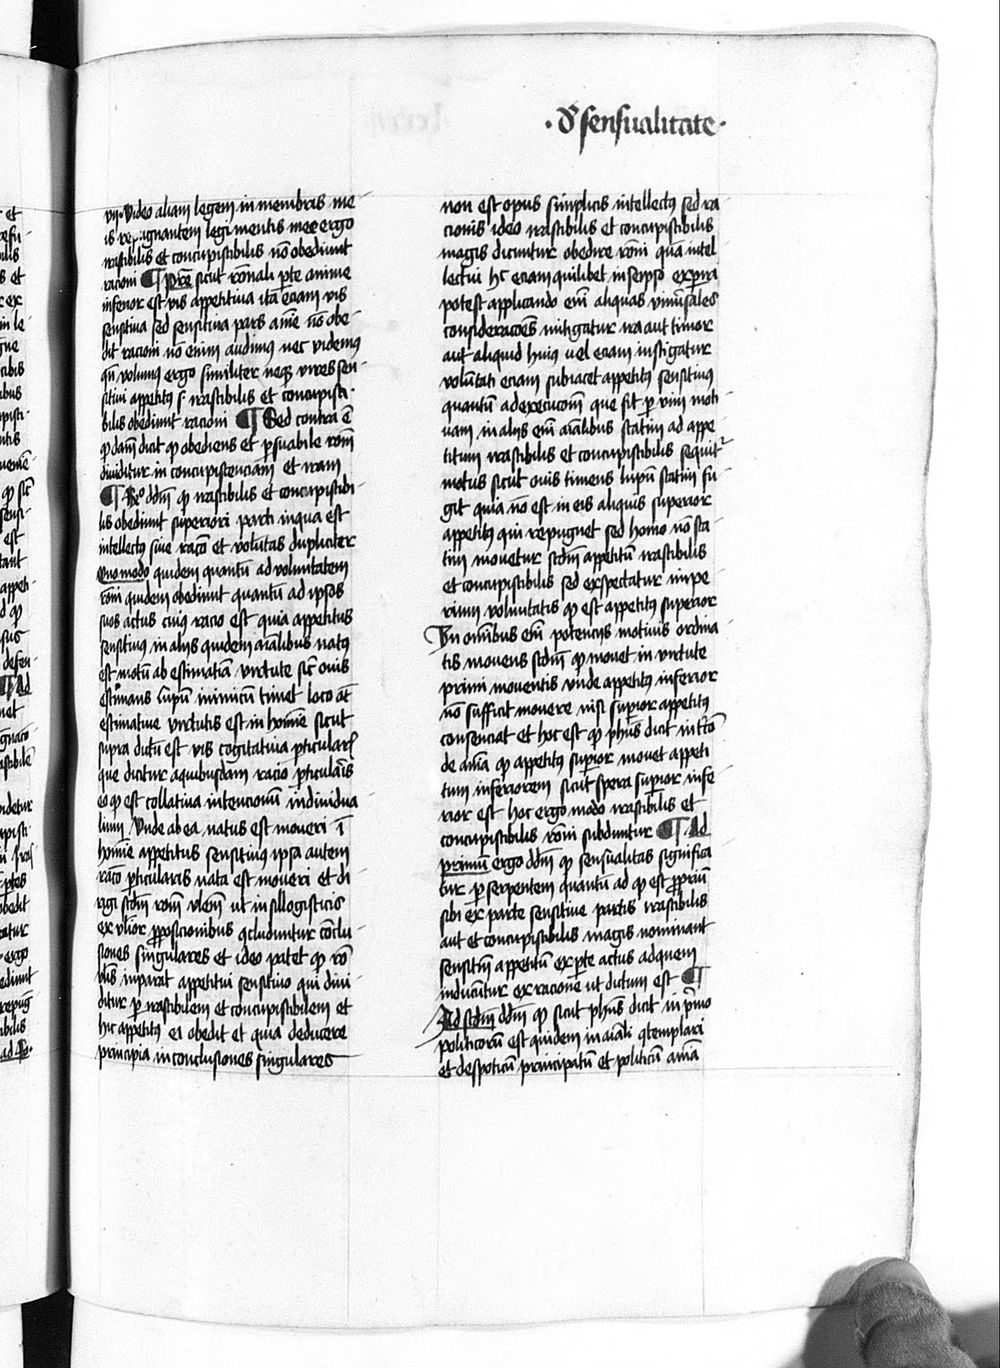 ·de sensualitate·
vij. Video aliam legem in membris me
is repugnantem legi mentis mee ergo
irascibilis et concupiscibilis nō obediunt
racioni ¶ Pre sicut rōnali pte anime
inferior est vis appetitiua ita eciam vis
sensitiua sed sensitiua pars aīe nō obe
dit racioni nō enim audimus nec videmus
qn̄ volumus ergo similiter neqȝ vires sen
sitiui appetitus .s. irascibilis et concupisci
bilis obediunt racioni ¶ Sed contra ē
qd dam̄ dicit qd obediens et psuabile rōni
diuiditur in concupiscenciam et iram
¶ Rō ddm̄ qd irascibilis et concupiscibi
lis obediunt superiori parti in qua est
intellectus siue racō et volūtas dupliciter
Vno modo quidem quantū ad voluntatem
rōni quidem obediunt quantū ad ipsos
suos actus cuiꝰ racio est quia appetitus
sensitiuus in alijs quidem aīalibus natus
est motū ab estimatiā virtute sic ouis
estimans lupū inimicū timet loco aut̄
estimatiue virtutis est in homīe sicut
supra dictū est vis cogitatiua pticulariū
que dicitur a quibusdam racio pticularis
eo qd est collatiua intencionū indiuidua
lium Vnde ab ea natus est moueri ī
homīe appetitus sensitiuꝰ ipsa autem
racō pticularis nata est moueri et di
rigi scdm̄ rōm vlem̄ vt in sillogisticis
ex vlior pposicionibus qcluduntur cōclu
siones singulares et ideo patet qd rō
vlis imparat appetitui sensitiuo qui diui
ditur p irascibilem et concupiscibilem et
hic appetitꝰ ei obedit et quia deducere
principia in conclusiones singulares
non est opus simplicis intellectꝰ sed ra
cionis ideo irascibilis et concupiscibilis
magis dicuntur obedire rōni quā intel
lectui hc eciam quilibet in seipso expiri
potest applicando em̄ aliquas vniūsales
consideraciōes mitigatur ira aut timor
aut aliquid huiꝰ uel eciam instigatur
volūtati eciam subiacet appetitꝰ sensitiuꝰ
quantū ad execucōm que fit p vim moti
uam in alijs em̄ aīalibus statim ad appe
titum irascibilis et concupiscibilis sequitr
motus sicut ouis timens lupū statim fu
git quia nō est in eis aliquis superior
appetitꝰ qui repugnet sed homo nō sta
tim mouetur scdm̄ appetitū irascibilis
et concupiscibilis sed exspectatur impe
rium voluntatis qd est appetitꝰ superior
In omībus em̄ potencijs motiuis ordina
tis mouens scdm̄ qd mouet in virtute
primi mouentis vnde appetitꝰ inferior
nō sufficit mouere nisi supior appetitꝰ
consenciat et hoc est qd phūs dicit in tcō
de aīa qd appetitꝰ supior mouet appeti
tum inferiorem sicut spera supior infe
rior est hoc ergo modo irascibilis et
concupiscibilis rōni subduntur ¶ Ad
primū ergo ddm̄ qd sensualitas significa
tur p serpentem quantū ad qd est ppriū
sibi ex parte sensitiue partis irascibilis
aut et concupiscibilis magis nominant
sensitiū appetitū ex pte actus ad quem
inducūtur ex racione ut dictum est ¶
Ad scdm̄ ddm̄ qd sicut phūs dicit in pimo
politicorū est quidem in aīali qtemplari
et despoticū principatū et politicū aīma